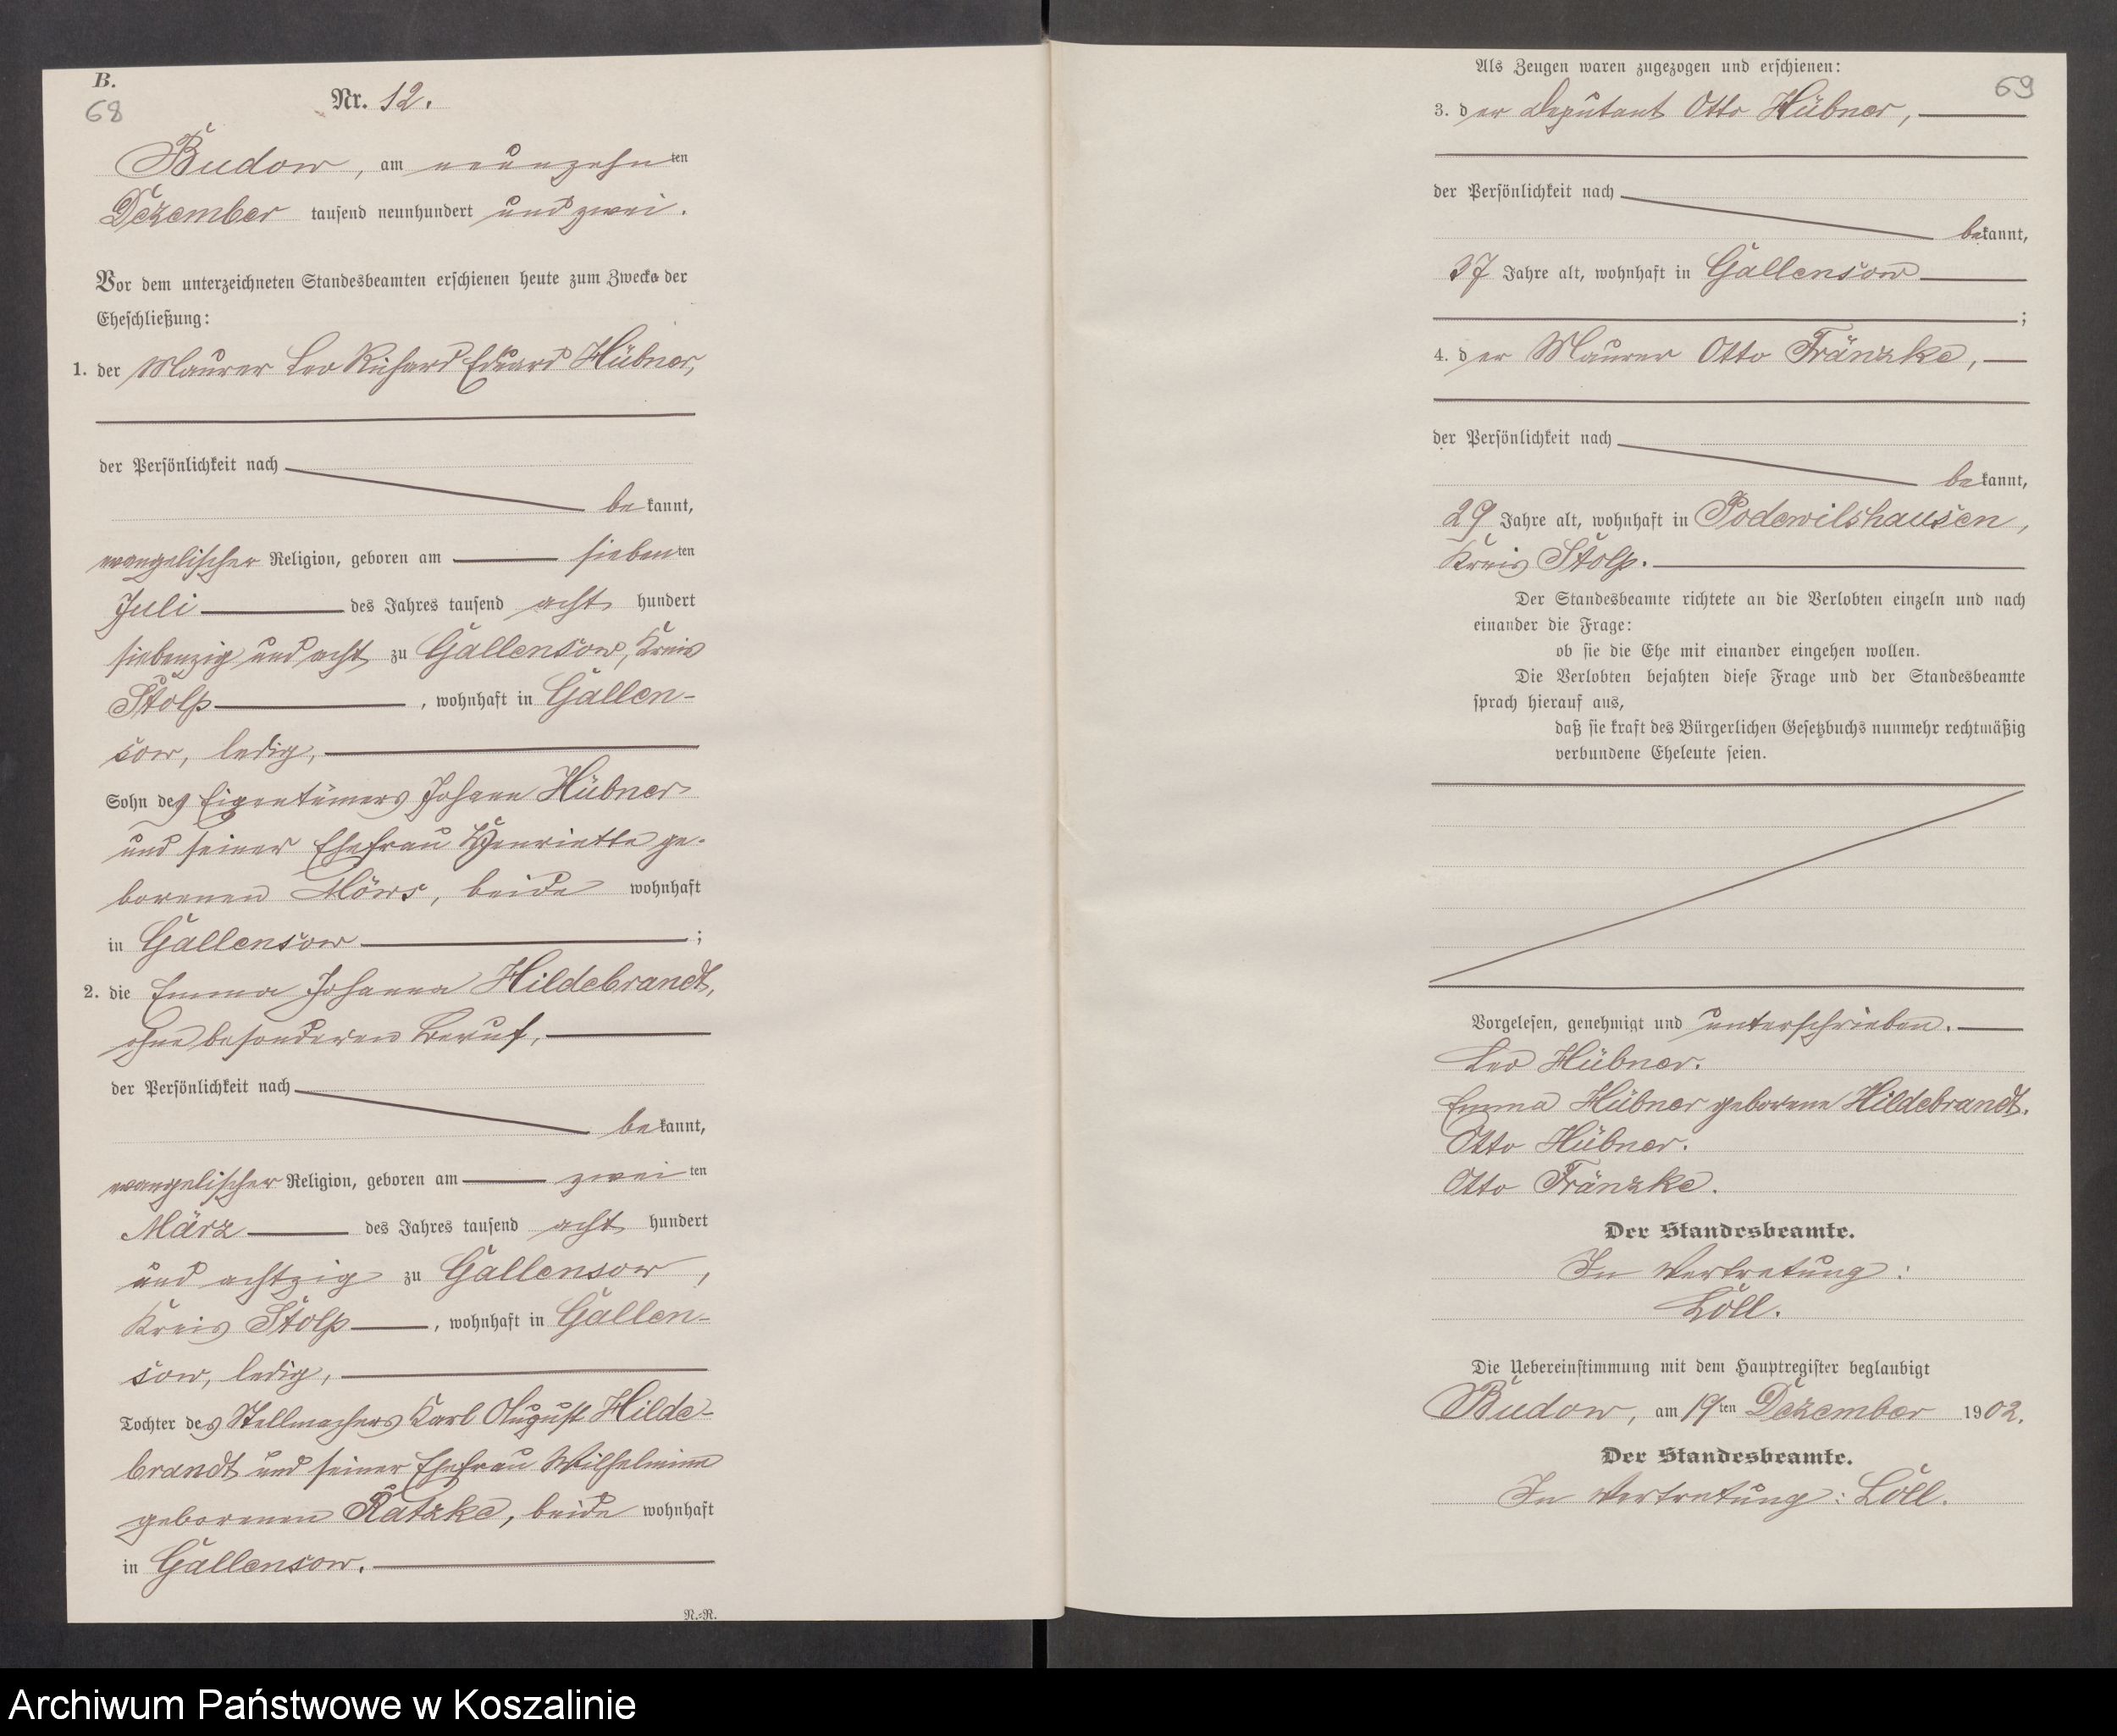 B.
68
Nr. 12.
Budow, am neunzehnten
Dezember tausend neunhundert und zwei.
Vor dem unterzeichneten Standesbeamten erschienen heute zum Zwecke der
Eheschließung:
1. der Maurer Leo Richard Eduard Hübner,
der Persönlichkeit nach
bekannt,
evangelischer Religion, geboren am siebenten
Juli des Jahres tausend acht hundert
siebenzig und acht zu Gallensow, Kreis
Stolp, wohnhaft in Gallen-
sow, ledig,
Sohn des Eigentümers Johann Hübner
und seiner Ehefrau Henriette ge-
borenen Mörs, beide wohnhaft
in Gallensow;
2. die Emma Johanna Hildebrandt,
ohne besonderen Beruf,
der Persönlichkeit nach
bekannt,
evangelischer Religion, geboren am zweiten
März des Jahres tausend acht hundert
und achtzig zu Gallensow,
Kreis Stolp, wohnhaft in Gallen-
sow, ledig,
Tochter des Stellmachers Karl August Hilde-
brandt und seiner Ehefrau Wilhelmine
geborenen Ratzke, beide wohnhaft
in Gallensow.
N.-N.
69
Als Zeugen waren zugezogen und erschienen:
3. der Deputant Otto Hübner,
der Persönlichkeit nach
bekannt,
37 Jahre alt, wohnhaft in Gallensow
;
4. der Maurer Otto Fränzke,
der Persönlichkeit nach
bekannt,
29 Jahre alt, wohnhaft in Podewilshausen,
Kreis Stolp.
Der Standesbeamte richtete an die Verlobten einzeln und nach
einander die Frage:
ob sie die Ehe mit einander eingehen wollen.
Die Verlobten bejahten diese Frage und der Standesbeamte
sprach hierauf aus,
daß sie kraft des Bürgerlichen Gesetzbuchs nunmehr rechtmäßig
verbundene Eheleute seien.
Vorgelesen, genehmigt und unterschrieben.
Leo Hübner.
Emma Hübner geborene Hildebrandt.
Otto Hübner.
Otto Fränzke.
Der Standesbeamte.
In Vertretung:
Löll.
Die Uebereinstimmung mit dem Hauptregister beglaubigt
Budow, am 19ten Dezember 1902.
Der Standesbeamte.
In Vertretung: Löll.
Archiwum Państwowe w Koszalinie